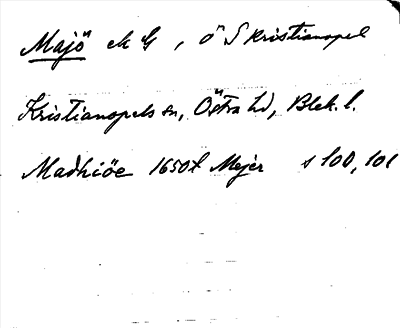 Majö ek G, ö S Kristianopel
Kristianopels sn, Östra hd, Blek. l.
Madhiöe 1650t Mejer s 100, 101